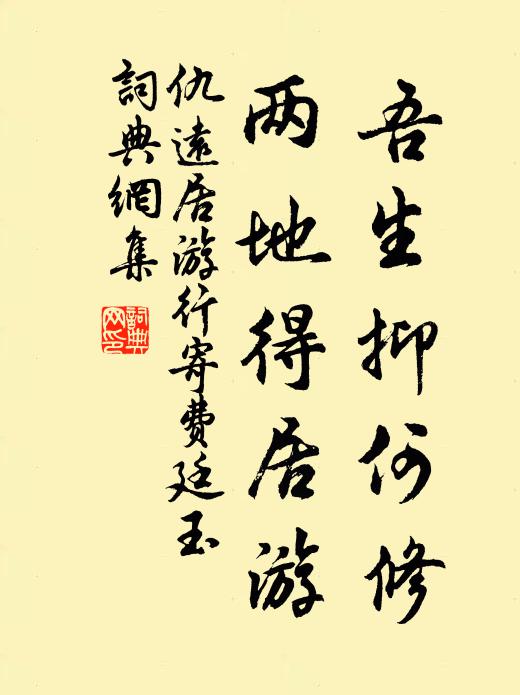 吾生抑何修
两地得居游
仇遠居游行寄費廷玉
詞典網集
詞典网印